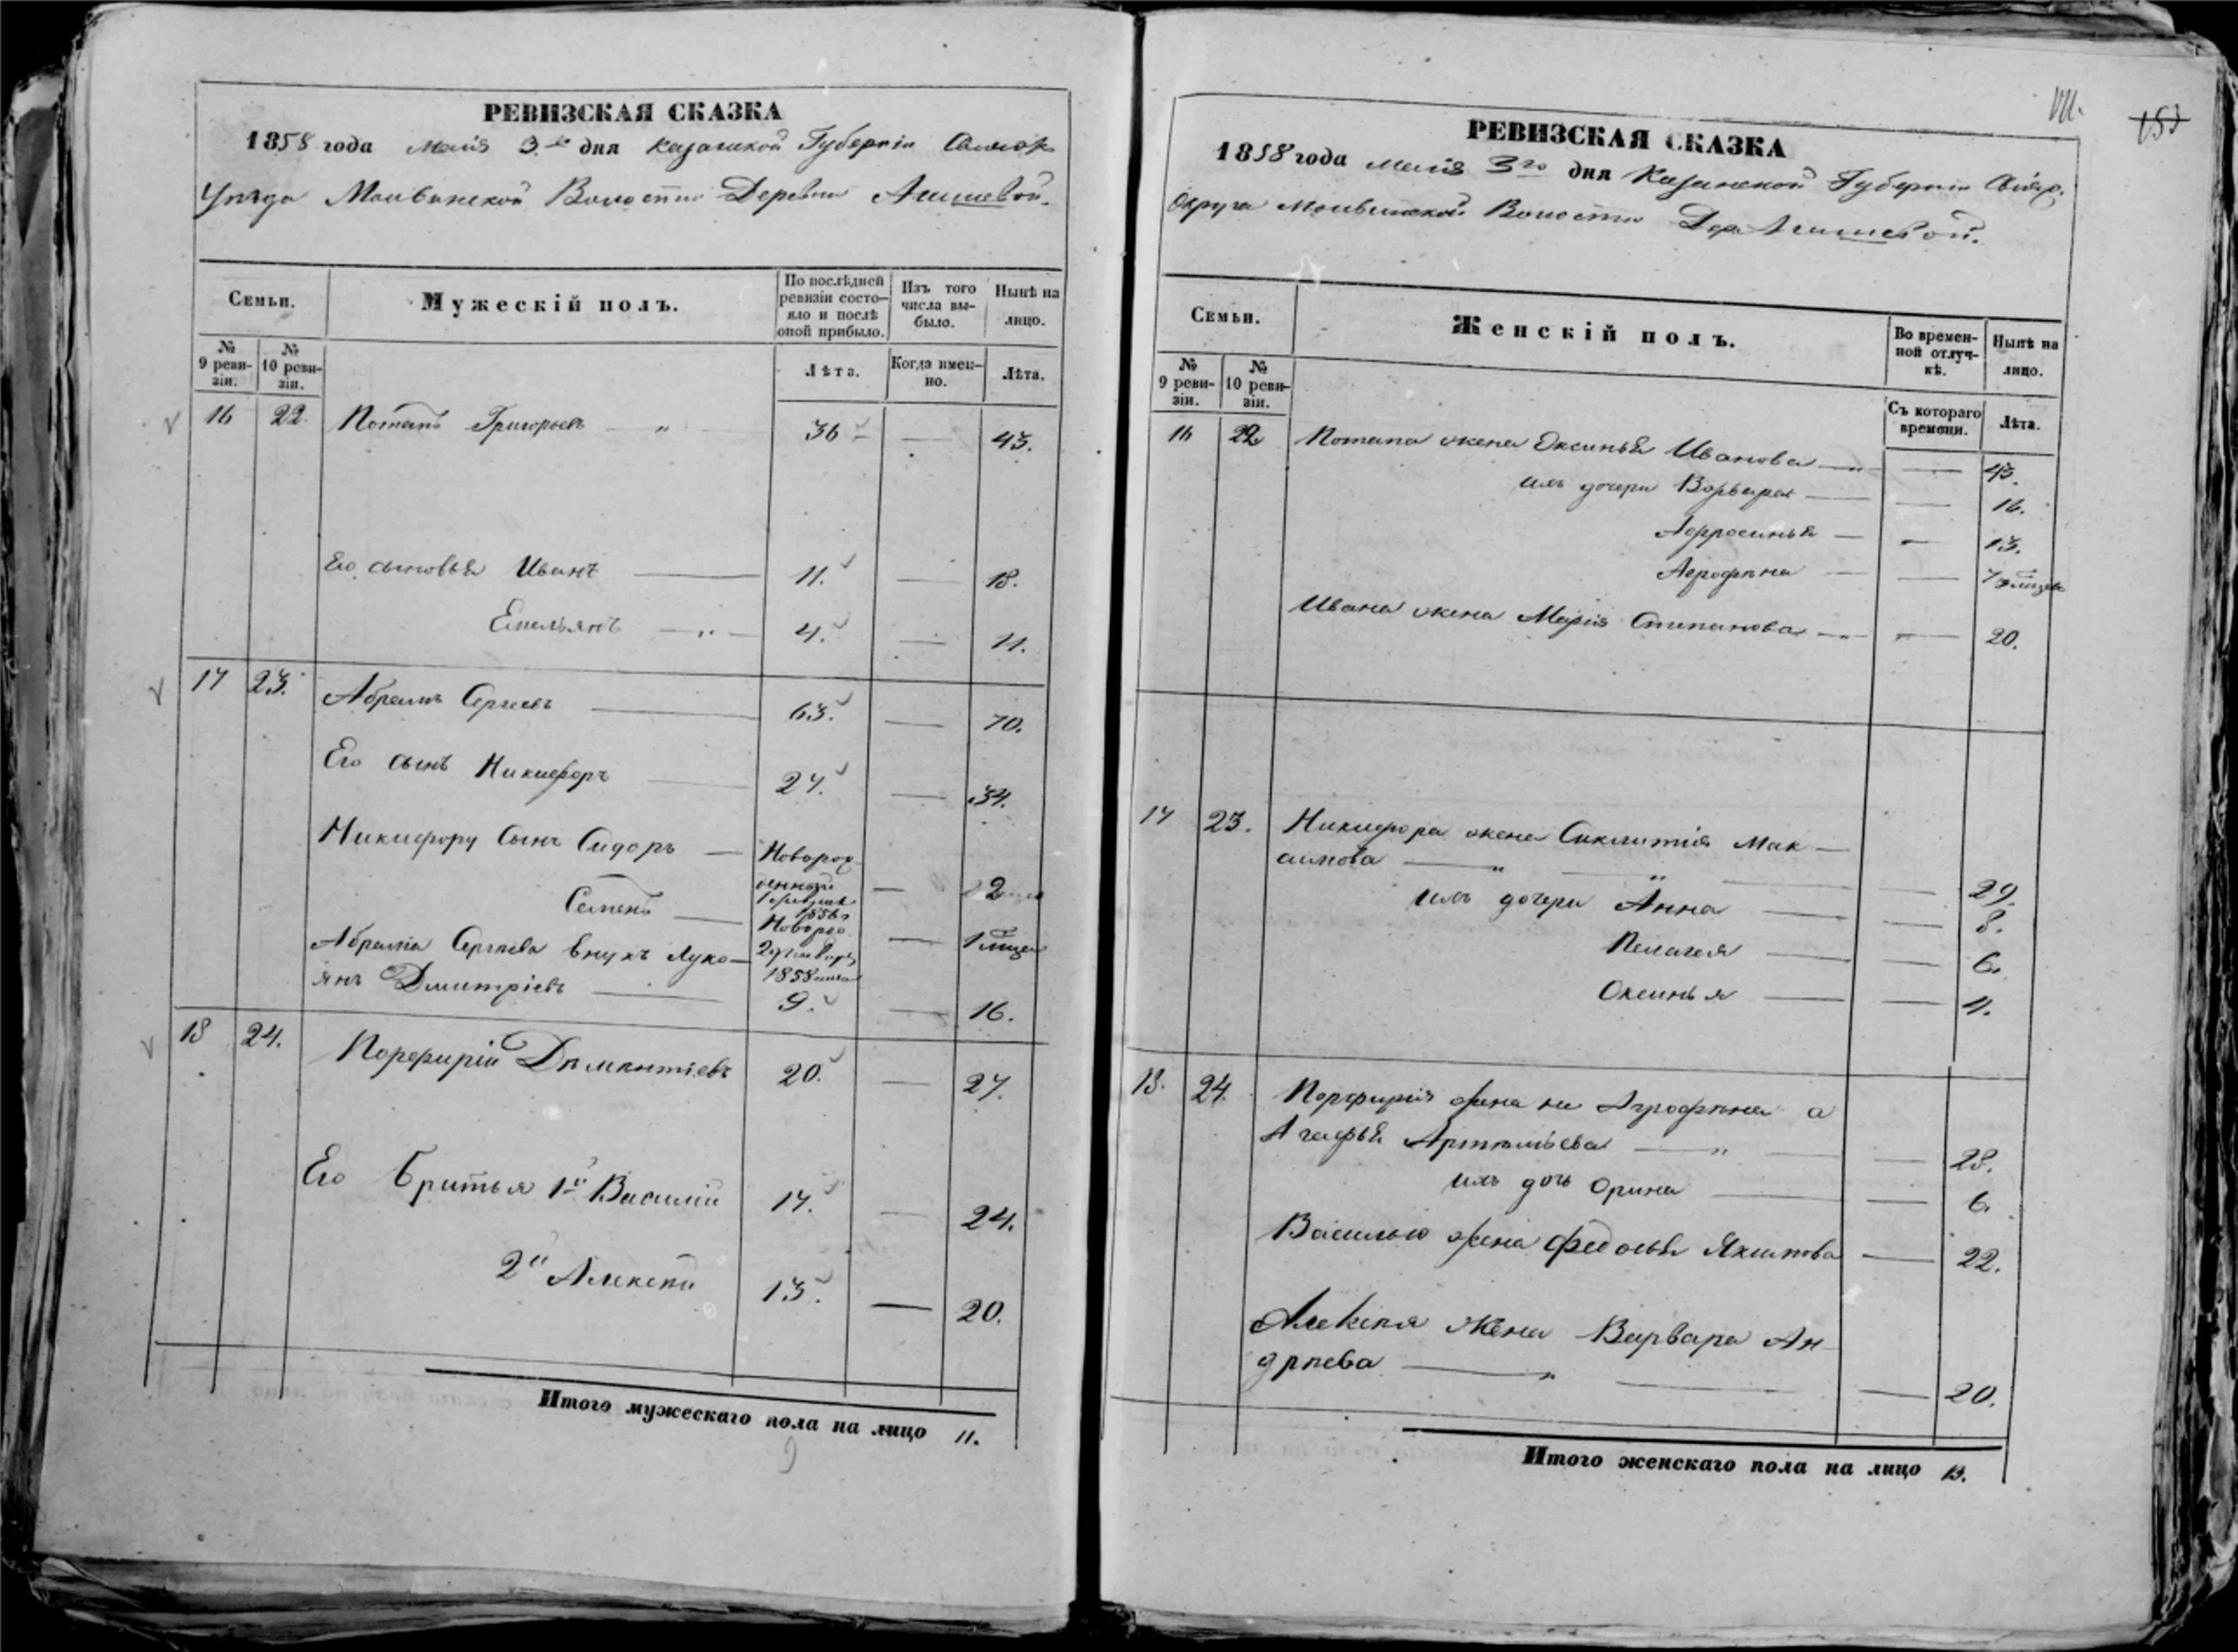 РЕВИЗСКАЯ СКАЗКА
1858 года Маія 3го дня Казанской Губерніи
Уѣзда Волости Деревни Агишевой.
Семьи.
Мужескій полъ.
По послѣдней ревизіи состояло и послѣ оной прибыло.
Изъ того числа выбыло.
Нынѣ на лицо.
№ 9 ревизіи.
№ 10 ревизіи.
Лѣта.
Когда именно.
Лѣта.
16 22. Потапъ Григорьевъ — " — 36 — 43.
Его сыновья Иванъ — 11. — 18.
Емельянъ — " — 4. — 11.
17 23. Абрамъ Сергеевъ — 63. — 70.
Его сынъ Никифоръ — 27. — 34.
Никифору Сынъ Сидоръ — Новорож
денный — 2
1856
Семенъ — Новорож — 1 мѣсяц
Абрама Сергѣева внукъ Луко-
янъ Дмитріевъ — 9. — 16.
1858
18 24. Порфирій Дѣментіевъ 20. — 27.
Его братья 1й Василій 17. — 24.
2й Алексѣй 13. — 20.
Итого мужескаго пола на лицо 11.
9
153
РЕВИЗСКАЯ СКАЗКА
1858 года Маія 3го дня Казанской Губерніи
Округа Волости Дер. Агишевой.
Семьи.
Женскій полъ.
Во временной отлучкѣ.
Нынѣ на лицо.
№ 9 ревизіи.
№ 10 ревизіи.
Съ котораго времени.
Лѣта.
16 22 Потапа жена Оксинья Иванова — " — 43.
ихъ дочери Варвара — — 16.
Афросинья — — 13.
Аграфѣна — — 7
Ивана жена Марія Степанова — " — 20.
17 23. Никифора жена Сиклитія Мак-
симова — " — " — 29.
ихъ дочери Анна — — 8.
Пелагея — — 6.
Оксинья — — 4.
18. 24. Порфирія жена не Аграфѣна а
Агафья Артемьева — " — 28.
ихъ дочь Орина — — 6.
Василью жена Федосья Якимова — 22.
Алексѣя жена Варвара Ан-
дрѣева — " — — 20.
Итого женскаго пола на лицо 13.